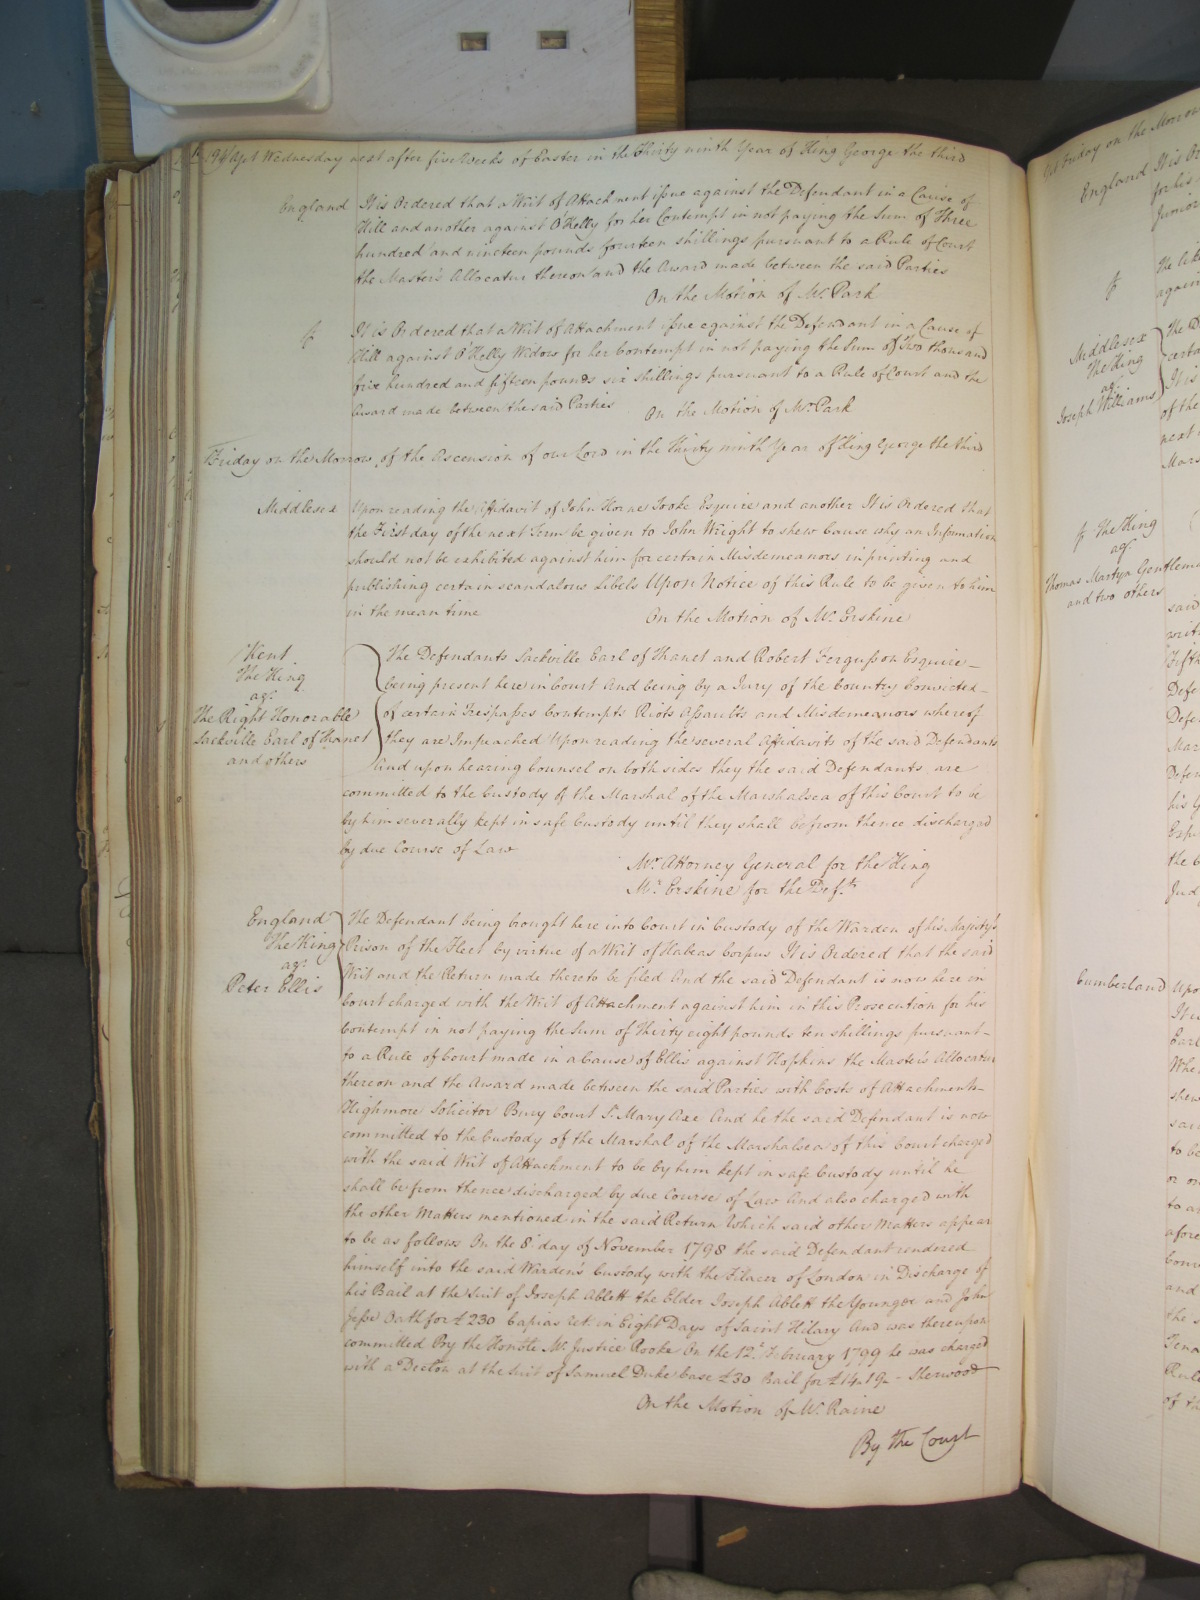 Wednesday next after five Weeks of Easter in the Thirty ninth Year of King George the third
England It is Ordered that a Writ of Attachment issue against the Defendant in a Cause of
Hill and another against O'Kelly for her Contempt in not paying the Sum of Three
hundred and nineteen pounds fourteen shillings pursuant to a Rule of Court
the Master's Allocatur thereon and the Award made between the said Parties
On the Motion of Mr. Park
It is Ordered that a Writ of Attachment issue against the Defendant in a Cause of
Hill against O'Kelly Widow for her Contempt in not paying the Sum of Two thousand
five hundred and fifteen pounds six shillings pursuant to a Rule of Court and the
Award made between the said Parties On the Motion of Mr. Park
Friday on the Morrow of the Ascension of our Lord in the Thirty ninth Year of King George the third
Middlesex Upon reading the Affidavit of John Horne Tooke Esquire and another It is Ordered that
the First day of the next Term be given to John Wright to shew Cause why an Information
should not be exhibited against him for certain Misdemeanors in printing and
publishing certain scandalous Libels Upon Notice of this Rule to be given to him
in the mean time On the Motion of Mr. Erskine
Kent
The King
agt.
The Right Honorable
Sackville Earl of Thanet
and others
The Defendants Sackville Earl of Thanet and Robert Fergusson Esquire
being present here in Court And being by a Jury of the Country Convicted
of certain Trespasses Contempts Riots Assaults and Misdemeanors whereof
they are Impeached Upon reading the several Affidavits of the said Defendants
And upon hearing Counsel on both sides they the said Defendants are
committed to the Custody of the Marshal of the Marshalsea of this Court to be
by him severally kept in safe Custody until they shall be from thence discharged
by due Course of Law
Mr. Attorney General for the King
Mr. Erskine for the Defts.
England
The King
agt.
Peter Ellis
The Defendant being brought here into Court in Custody of the Warden of his Majesty's
Prison of the Fleet by virtue of a Writ of Habeas Corpus It is Ordered that the said
Writ and the Return made thereto be filed And the said Defendant is now here in
Court charged with the Writ of Attachment against him in this Prosecution for his
Contempt in not paying the Sum of Thirty eight pounds ten shillings pursuant
to a Rule of Court made in a Cause of Ellis against Hopkins the Master's Allocatur
thereon and the Award made between the said Parties with Costs of Attachment
Highmore Solicitor Bury Court St. Mary Axe And he the said Defendant is now
committed to the Custody of the Marshal of the Marshalsea of this Court charged
with the said Writ of Attachment to be by him kept in safe Custody until he
shall be from thence discharged by due Course of Law And also charged with
the other Matters mentioned in the said Return Which said other Matters appear
to be as follows On the 8th day of November 1798 the said Defendant rendered
himself into the said Warden's Custody with the Filacer of London in Discharge of
his Bail at the Suit of Joseph Ablett the Elder Joseph Ablett the Younger and John
Jesse Oath for £230 Capias ret. in Eight Days of Saint Hilary And was thereupon
committed By the Honble Mr. Justice Rooke On the 12th February 1799 he was charged
with a Decton at the Suit of Samuel Duke Case £30 Bail for £14.19 - Sherwood
On the Motion of Mr. Raine
By the Court
Friday on the Morrow
England It is
for his
Junior
The like
against
Middlesex
The King
agt.
Joseph Williams
It is
of the
next
The King
agt.
Thomas Martyn Gentleman
and two others
said
Cumberland Upo
Earl
to be
the
of th